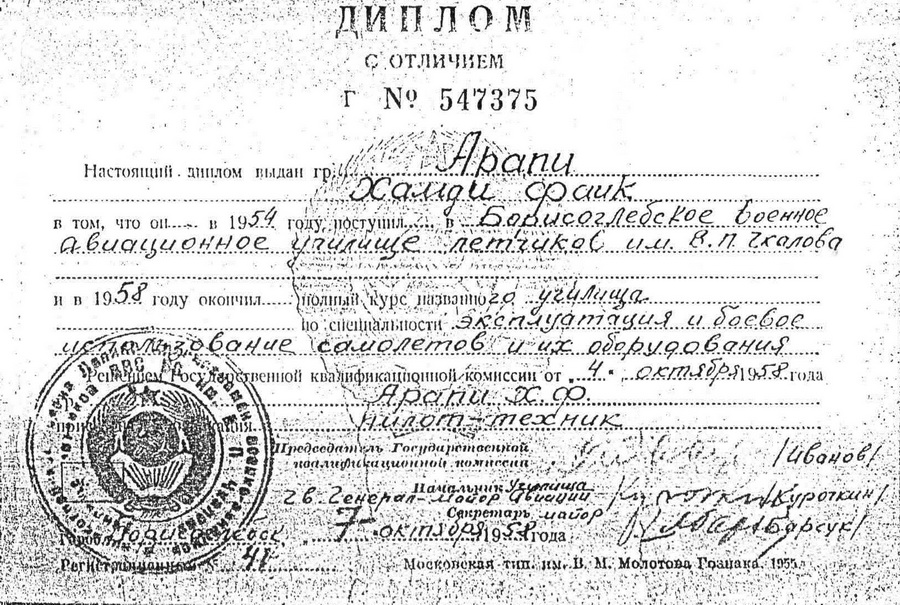 ДИПЛОМ
С ОТЛИЧИЕМ
Г № 547375
Настоящий диплом выдан гр. Арапи
Хамди Фаик
в том, что он в 1954 году поступил в Борисоглебское Военное
авиационное училище летчиков им. В.П. Чкалова
и в 1958 году окончил полный курс названного училища
по специальности эксплуатация и боевое
использование самолетов и их оборудования
Решением Государственной квалификационной комиссии от 4 октября 1958 года
Арапи Х.Ф.
пилот-техник
Председатель Государственной
квалификационной комиссии /Иванов/
Начальник Училища
гв. Генерал-Майор Авиации /Куроткин/
Секретарь майор /Барсук/
Город 7 октября 1958 года
Регистрационный № 41
Московская тип. им. В. М. Молотова Гознака. 1955